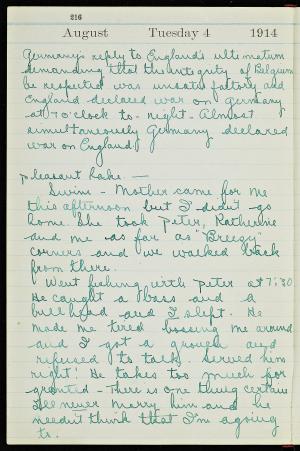 216
August Tuesday 4 1914
Germany's reply to England's ultimatum
demanding that the integrity of Belgium
be respected was unsatisfactory and
England declared war on Germany
at 7 o'clock to-night. Almost
simultaneously Germany declared
war on England.
Pleasant Lake. —
Swim - Mother came for me
this afternoon but I didn't go
home. She took Peter, Katherine
and me as far as "Breezy"
corners and we walked back
from there.
Went fishing with Peter at 7:30
He caught a bass and a
bull head and I slept. He
made me tired bossing me around
and I got a grouch and
refused to talk. Served him
right! He takes too much for
granted - There is one thing certain
I'll never marry him and he
needn't think that I'm agoing
to.